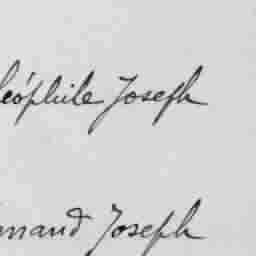 léophile Joseph
mand Joseph